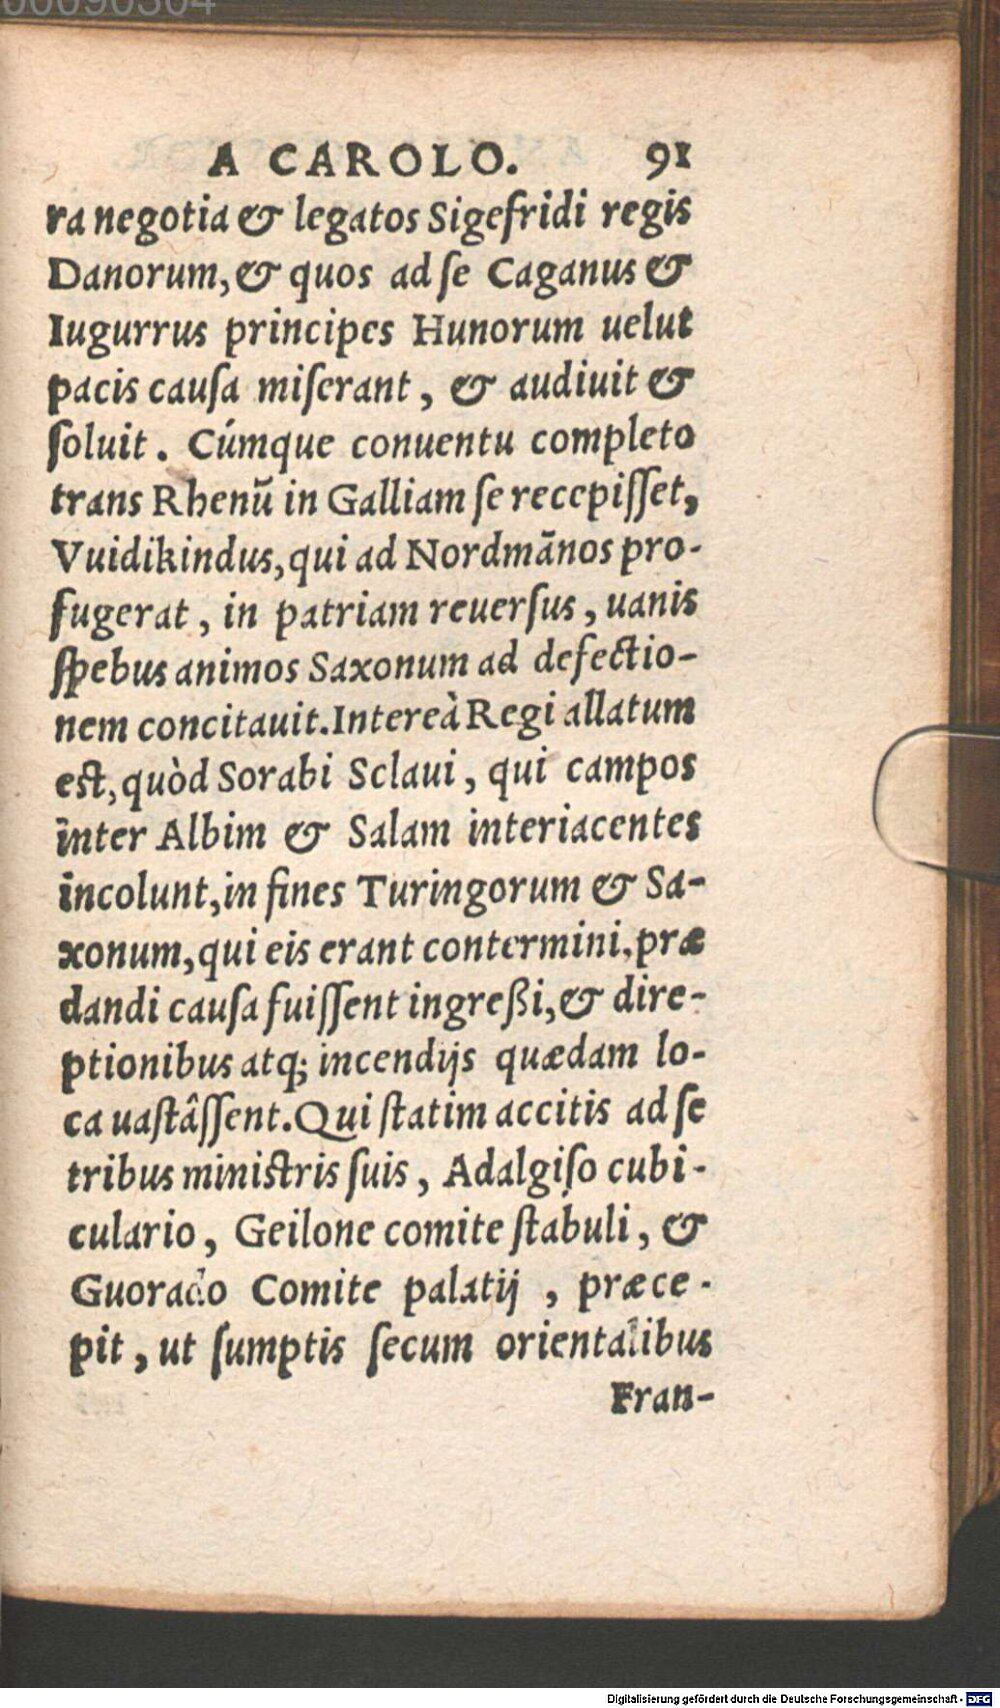 00090304
A CAROLO. 91
ra negotia & legatos Sigefridi regis
Danorum, & quos ad ſe Caganus &
Iugurrus principes Hunorum uelut
pacis cauſa miſerant, & audiuit &
ſoluit. Cúmque conuentu completo
trans Rhenū in Galliam ſe recepiſſet,
Vuidikindus, qui ad Nordmānos pro-
fugerat, in patriam reuerſus, uanis
ſpebus animos Saxonum ad defectio-
nem concitauit. Intereà Regi allatum
eſt, quòd Sorabi Sclaui, qui campos
inter Albim & Salam interiacentes
incolunt, in fines Turingorum & Sa-
xonum, qui eis erant contermini, præ
dandi cauſa fuiſſent ingreßi, & dire-
ptionibus atq; incendijs quædam lo-
ca uaſtâſſent. Qui ſtatim accitis ad ſe
tribus miniſtris ſuis, Adalgiſo cubi-
culario, Geilone comite ſtabuli, &
Guorado Comite palatij, præce-
pit, ut ſumptis ſecum orientalibus
Fran-
Digitalisierung gefördert durch die Deutsche Forschungsgemeinschaft - DFG